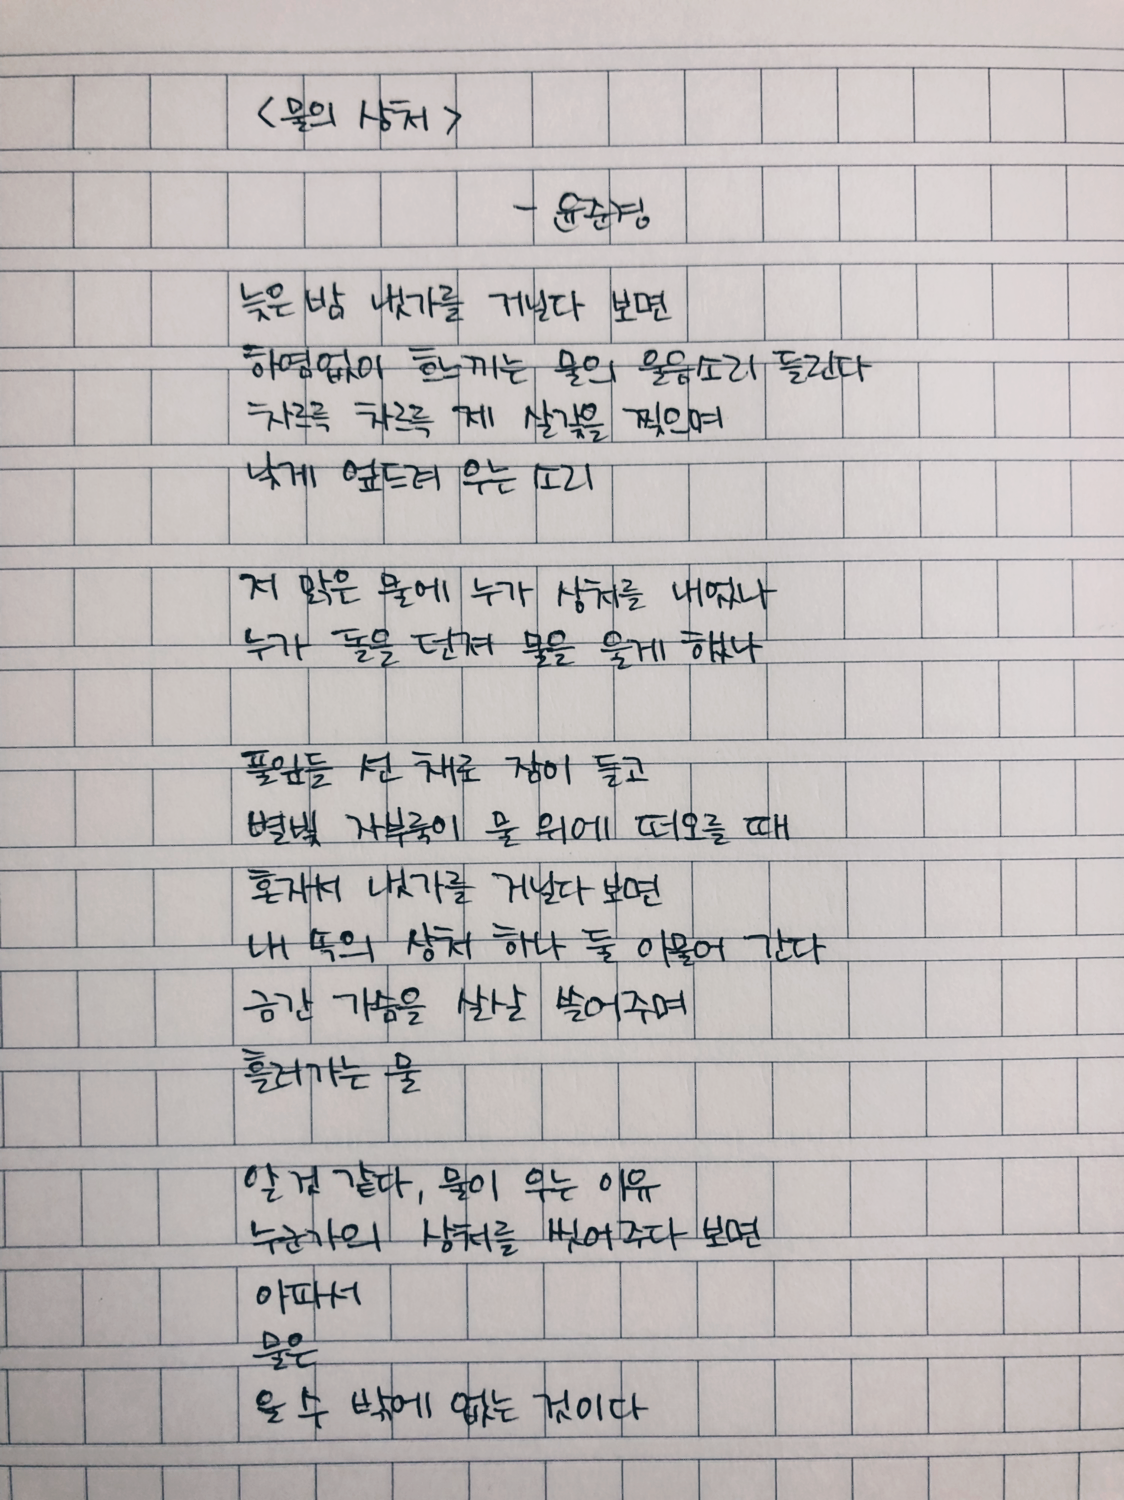 <물의 상처>
- 윤준경
늦은 밤 냇가를 거닐다 보면
하염없이 흐느끼는 물의 울음소리 들린다
차르륵 차르륵 제 살갗을 찢으며
낮게 엎드려 우는 소리
저 맑은 물에 누가 상처를 내었나
누가 돌을 던져 물을 울게 했나
풀잎들 선 채로 잠이 들고
별빛 자부룩이 물 위에 떠오를 때
혼자서 냇가를 거닐다 보면
내 쪽의 상처 하나 둘 아물어 간다
금간 가슴을 살살 쓸어주며
흘러가는 물
알 것 같다, 물이 우는 이유
누군가의 상처를 씻어주다 보면
아파서
물은
울 수 밖에 없는 것이다